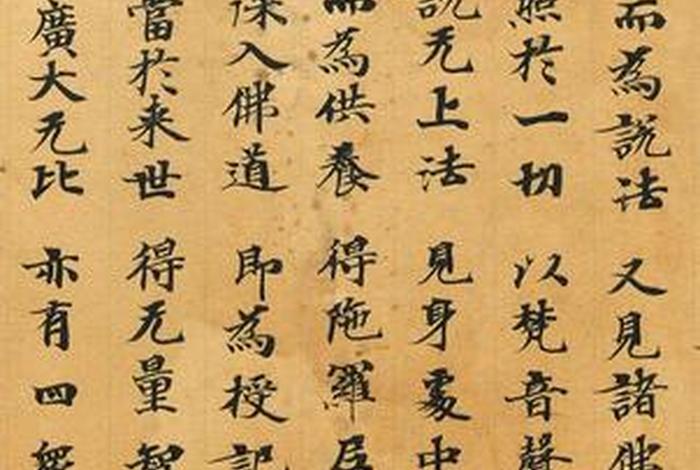 而為說法 又見諸佛
照於一切 以梵音聲
說无上法 見身處中
而為供養 得陁羅尼
深入佛道 即為授記
當於来世 得无量智
廣大无比 亦有四衆